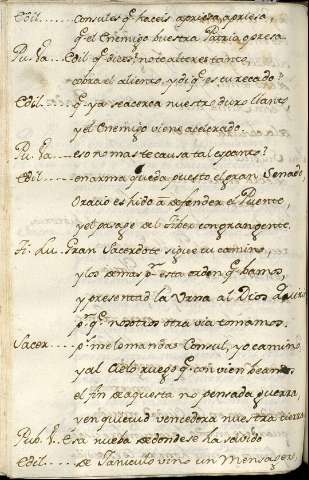 Edil.... Consules q haceis apriesa, apriesa,
q el Enemigo buestra Patria opresa
Pu. Va... Edil q dices? no te alteres tanto,
cobra el aliento, y di q es tu recado?
Edil... q ya se acerca nuestro duro llanto,
y el Enemigo viene acelerado,
Pu. Va... eso no mas te causa tal espanto?
Edil... en arma queda puesto el gran Senado
Oracio es hido a defender el Puente,
y el pasage del Tiber con gran gente,
A. Lu. Gran Sacerdote sigue tu camino,
y los demas p. esta orden q hamos,
y presentad la Vrna al Dios
p. q. nosotros otra via tomamos.
Sacer.... p. me lo mandas Consul, yo camino
y al Cielo ruego q. con vien beamos
el fin de aquesta no pensada guerra,
y en quietud vencedora nuestra tierra
Pub. V.. Esa nueba de donde se ha savido
Edil.... de Janiculo vino un Mensagero,